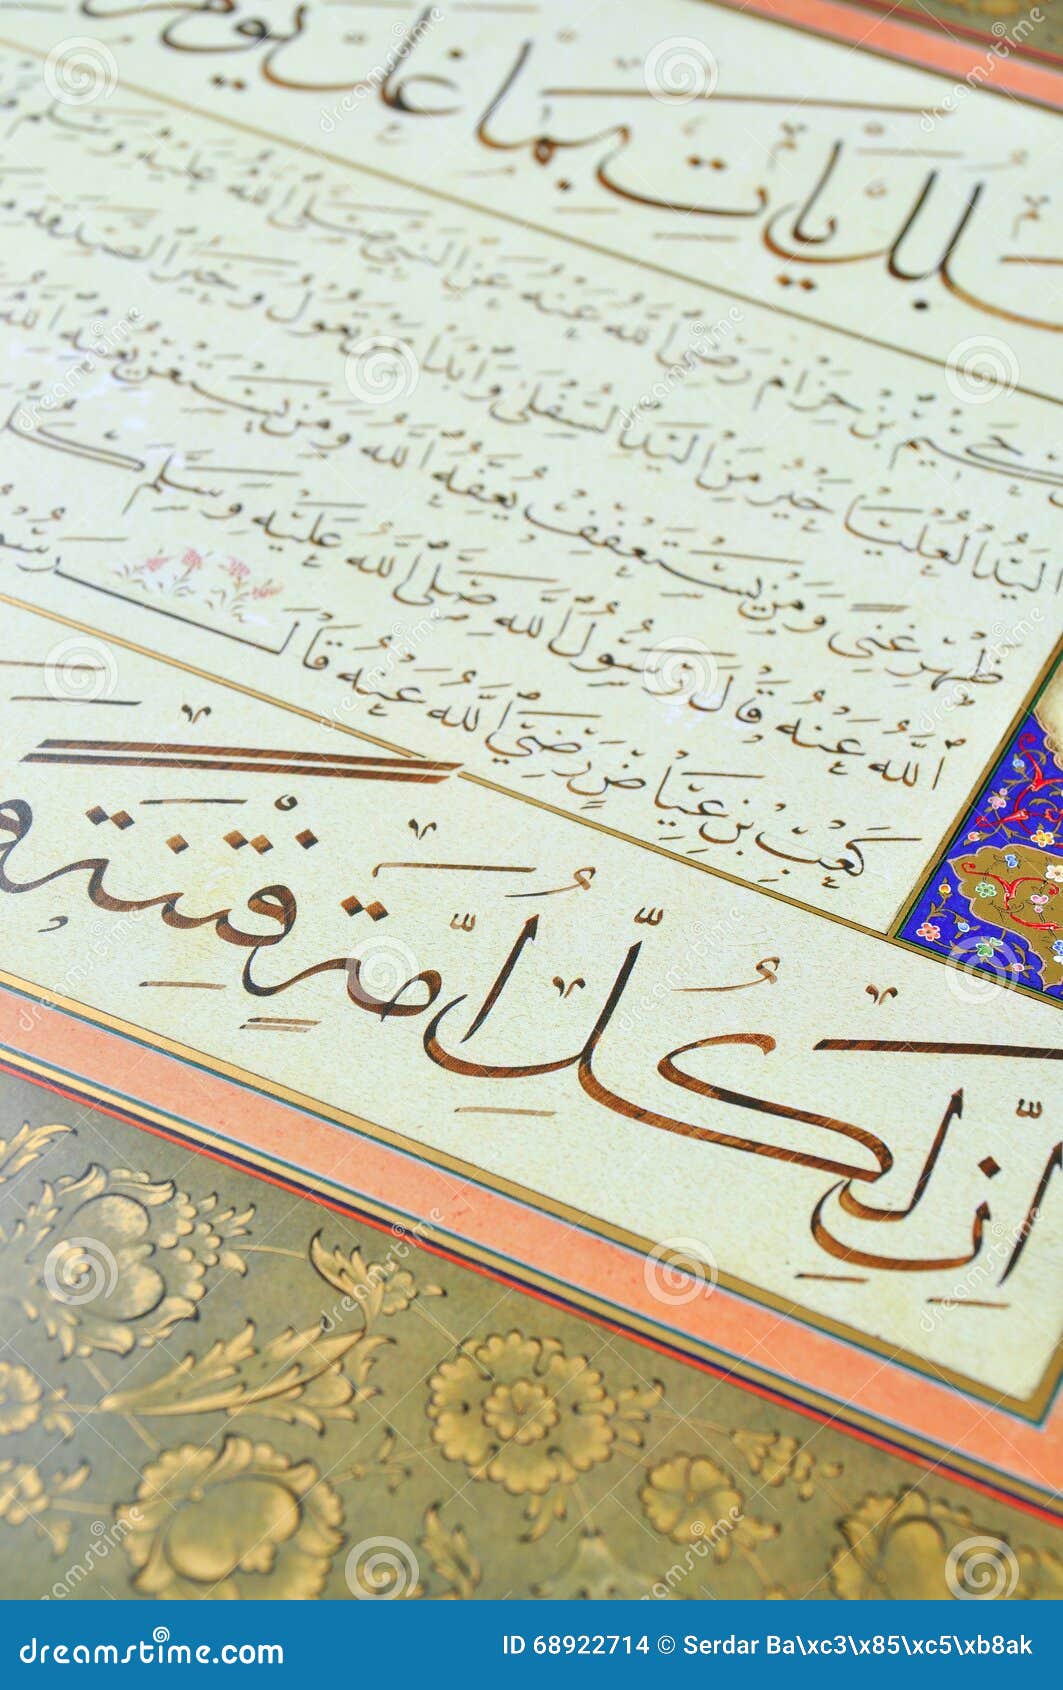 يَأْتِ بِمَا غَلَّ يَوْمَ
حَكِيمِ بْنِ حِزَامٍ رَضِيَ اللّٰهُ عَنْهُ عَنِ النَّبِيِّ صَلَّى اللّٰهُ عَلَيْهِ وَسَلَّمَ
اَلْيَدُ الْعُلْيَا خَيْرٌ مِنَ الْيَدِ السُّفْلَى وَابْدَأْ بِمَنْ تَعُولُ وَخَيْرُ الصَّدَقَةِ
ظَهْرِ غِنًى وَمَنْ يَسْتَعْفِفْ يُعِفَّهُ اللّٰهُ وَمَنْ يَسْتَغْنِ يُغْنِهِ اللّٰهُ
اَللّٰهُ عَنْهُ قَالَ رَسُولُ اللّٰهِ صَلَّى اللّٰهُ عَلَيْهِ وَسَلَّمَ
كَعْبِ بْنِ عِيَاضٍ رَضِيَ اللّٰهُ عَنْهُ قَالَ
اِنَّ لِكُلِّ اُمَّةٍ فِتْنَةً
dreamstime.com
ID 68922714 © Serdar Ba\xc3\x85\xc5\xb8ak